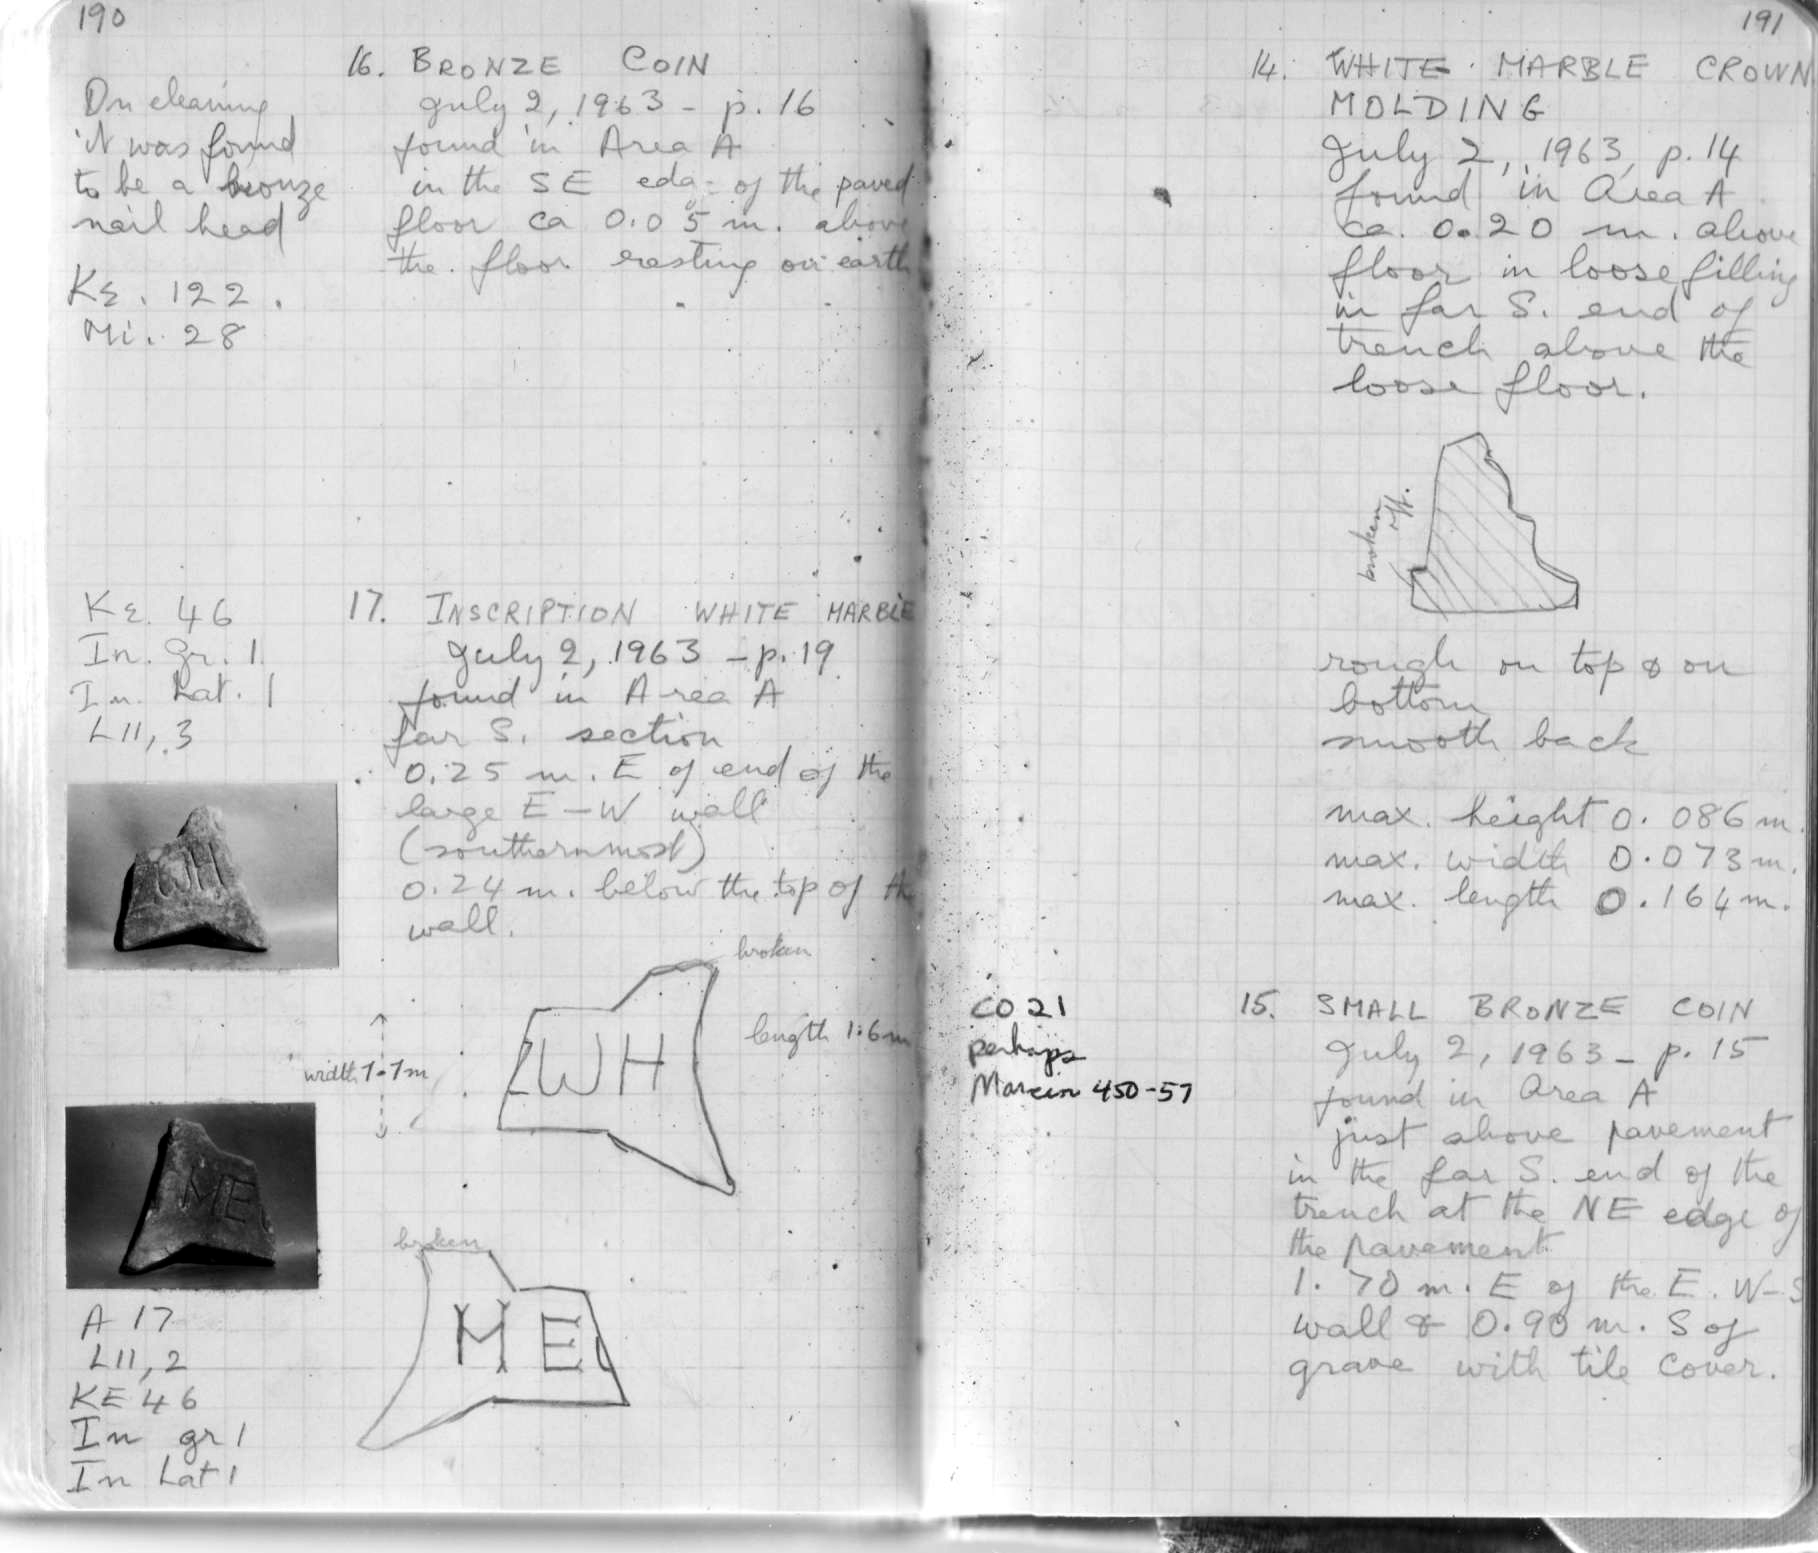 190
On cleaning
it was found
to be a bronze
nail head
Kε. 122.
Mi. 28
16. BRONZE COIN
July 2, 1963 - p. 16
found in Area A
in the SE edge of the paved
floor ca 0.05 m. above
the floor resting on earth
Kε. 46
In. Gr. 1
In. Lat. 1
L11, 3
17. INSCRIPTION WHITE MARBLE
July 2, 1963 - p. 19
found in Area A
far S. section
0.25 m. E of end of the
large E-W wall
(southernmost)
0.24 m. below the top of the
wall.
WH
broken
length 1.6 m
WH
width 1.1 m
ME
broken
ME
A 17
L11, 2
KE 46
In gr 1
In Lat 1
191
14. WHITE MARBLE CROWN
MOLDING
July 2, 1963, p. 14
found in Area A
ca. 0.20 m. above
floor in loose filling
in far S. end of
trench above the
loose floor.
broken
off.
rough on top & on
bottom
smooth back
max. height 0.086 m.
max. width 0.073 m.
max. length 0.164 m.
CO 21
perhaps
Marcian 450-57
15. SMALL BRONZE COIN
July 2, 1963 - p. 15
found in Area A
just above pavement
in the far S. end of the
trench at the NE edge of
the pavement
1.70 m. E of the E. W-S
wall & 0.90 m. S of
grave with tile cover.